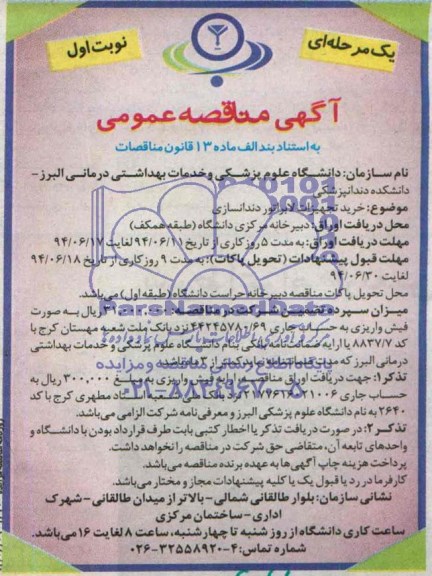 یک مرحله‌ای
نوبت اول
آگهی مناقصه عمومی
به استناد بند الف ماده ۱۳ قانون مناقصات
نام سازمان: دانشگاه علوم پزشکی و خدمات بهداشتی درمانی البرز -
دانشکده دندانپزشکی
موضوع: خرید تجهیزات لابراتور دندانسازی
محل دریافت اوراق: دبیرخانه مرکزی دانشگاه (طبقه همکف)
مهلت دریافت اوراق: به مدت ۵ روز کاری از تاریخ ۹۴/۰۶/۱۱ لغایت ۹۴/۰۶/۱۷
مهلت قبول پیشنهادات (تحویل پاکات): به مدت ۹ روز کاری از تاریخ ۹۴/۰۶/۱۸
لغایت ۹۴/۰۶/۳۰
محل تحویل پاکات مناقصه دبیرخانه حراست دانشگاه (طبقه اول) می‌باشد.
میزان سپرده تضمین شرکت در مناقصه: ریال به صورت
فیش واریزی به حساب جاری ۴۴۲۴۵۷۸۰/۶۹ نزد بانک ملت شعبه مهستان کرج با
کد ۸۸۳۷/۷ یا ارایه ضمانت نامه بانکی بنام دانشگاه علوم پزشکی و خدمات بهداشتی
درمانی البرز که مدت ضمانتنامه نباید کمتر از ۳ ماه باشد.
تذکر۱: جهت دریافت اوراق مناقصه ارایه فیش واریزی به مبلغ ۳۰۰,۰۰۰ ریال به
حساب جاری نزد بانک شهید مطهری کرج با کد
۲۶۴۰ به نام دانشگاه علوم پزشکی البرز و معرفی نامه شرکت الزامی می‌باشد.
تذکر۲: در صورت دریافت تذکر یا اخطار کتبی بابت طرف قرارداد بودن با دانشگاه و
واحدهای تابعه آن، متقاضی حق شرکت در مناقصه را نخواهد داشت.
پرداخت هزینه چاپ آگهی‌ها به عهده برنده مناقصه می‌باشد.
کارفرما در رد یا قبول یک یا کلیه پیشنهادات مجاز و مختار می‌باشد.
نشانی سازمان: بلوار طالقانی شمالی - بالاتر از میدان طالقانی - شهرک
اداری - ساختمان مرکزی
ساعت کاری دانشگاه از روز شنبه تا چهارشنبه، ساعت ۸ لغایت ۱۶ می‌باشد.
شماره تماس: ۴-۳۲۵۵۸۹۲۰-۰۲۶
ParsNamadData
پایگاه اطلاع رسانی مناقصه و مزایده
۰۲۱-۸۸۳۴۹۶۷۰-۵